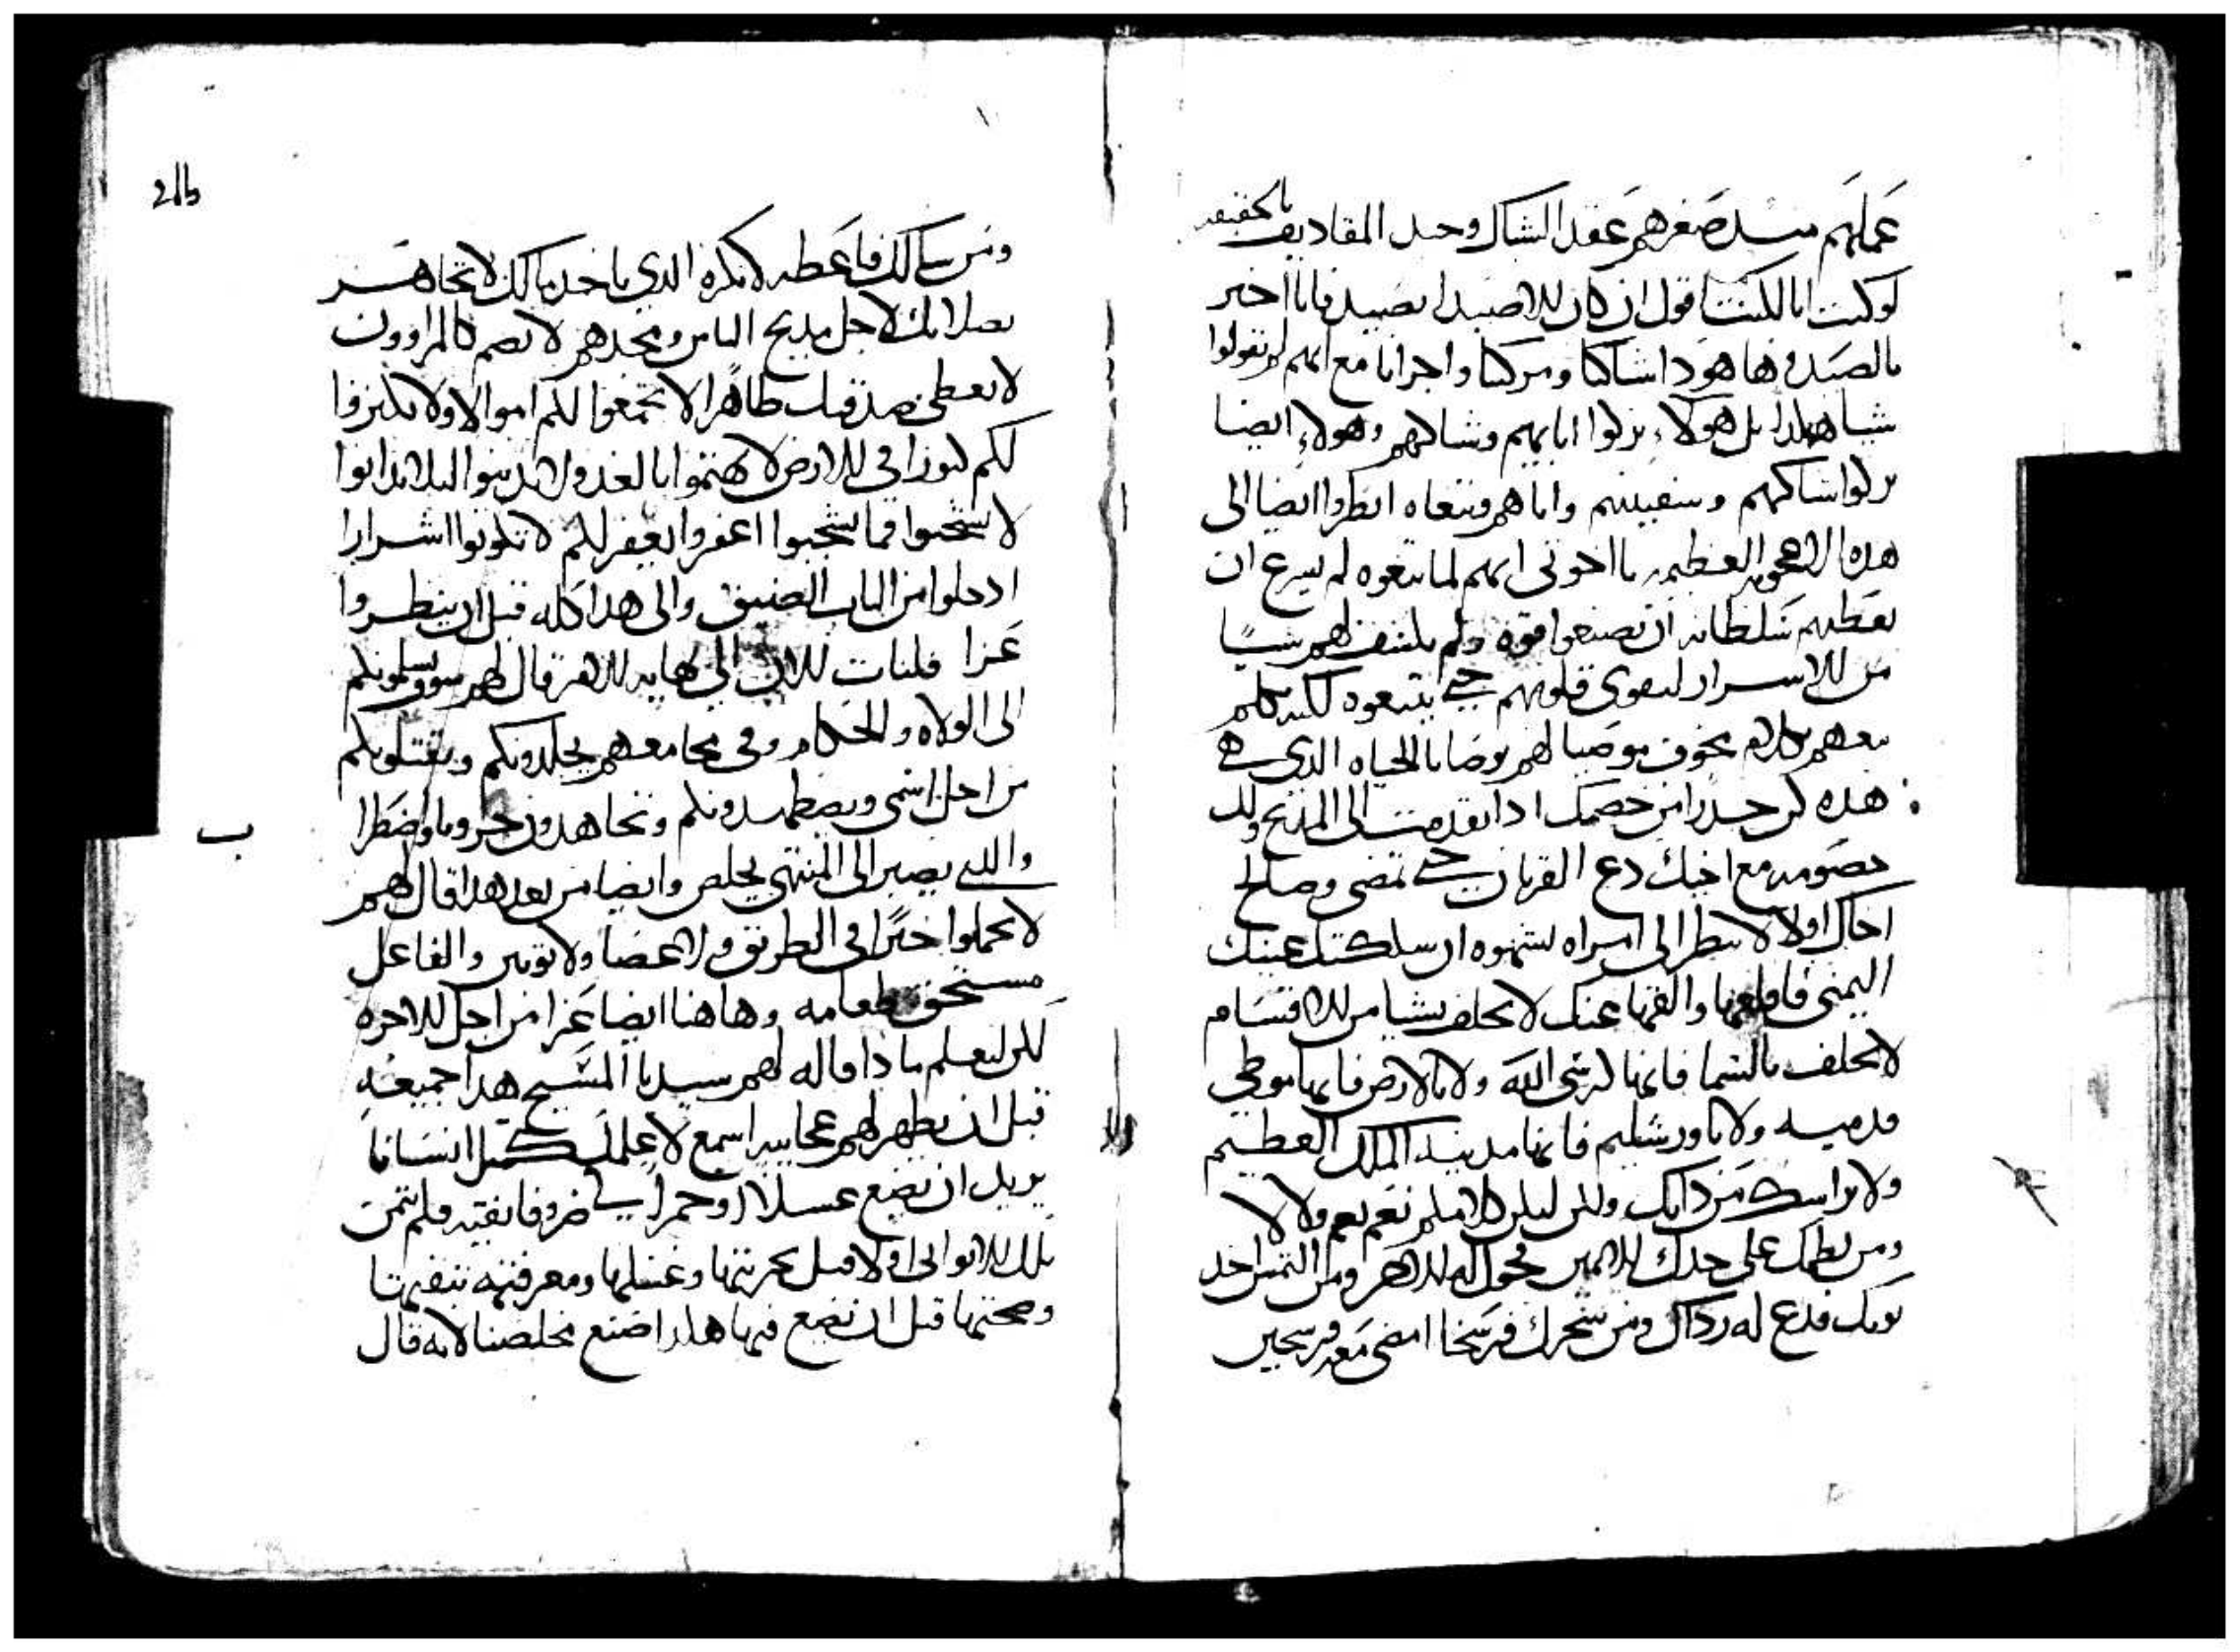 عملهم منذ صغرهم عقد الشباك وحدل المقاديف بالحقيقه
لو كنت انا لكنت اقول ان كان للاصيد انصيد فانا اخبر
بالصيد فها هوذا شباكنا ومركبنا واجرانا مع انهم لم يقولوا
شيا هكذا بل هولاء تركوا اباهم وشباكهم وهولاء ايضا
تركوا شباكهم وسفينتهم واباهم وتبعاه انظروا ايضا الى
هذه الاعجوبه العظيمه يا اخوتى انهم لما تبعوه لم يسرع ان
يعطيهم سلطانه ان يصنعوا قوه ولم يكشف لهم شيا
من الاسرار ليقوى قلوبهم حتى يتبعوه لكنه تكلم
معهم بكلام مخوف موصيا لهم بوصايا الحياه الذي هي
هذه كن حذرا من خصمك اذا تقدمت الى المذبح ولك
خصومه مع اخيك دع القربان حتى تمضى وصالح
اخاك اولا لا تنظر الى امراه لتشتهوه ان سككتك عينك
اليمنى فاقلعها والقها عنك لا تحلف بشيا من الاقسام
لا تحلف بالسما فانها كرسى الله ولا بالارض فانها موطى
قدميه ولا باورشليم فانها مدينه الملك العظيم
ولا براسك من ذاتك ولكن ليكن كلامكم نعم نعم ولا لا
ومن لطمك على خدك الايمن فحول له الاخر ومن التمس اخذ
ثوبك فدع له رداك ومن سخرك فرسخا امضى معه فرسخين
216
ومن سالك فاعطه لا تكره الذي ياخذ مالك لا تجاهر
بصلاتك لاجل مديح الناس ومجدهم لا تصم كالمراوون
لا تعطى صدقتك ظاهرا لا تجمعوا لكم اموالا ولا تكنزوا
لكم كنوزا في الارض لا تهتموا بالغد ولا تدينوا ليلا تدانوا
لا تنتخبوا فما تنتخبوا اغفروا يغفر لكم لا تكونوا اشرارا
ادخلوا من الباب الضيق والى هذا كله قبل ان ينظروا
عزا فلنات الان الى نهايه الامر قال لهم سوف يسلمونكم
الى الولاه والحكام وفى مجامعهم يجلدونكم ويقتلونكم
من اجل اسمى ويضطهدونكم وتجاهدون حروبا واضطرا
والذى يصبر الى المنتهى يخلص وايضا من بعد هذا قال لهم
لا تحملوا خبزا فى الطريق ولا عصا ولا ثوبين والفاعل
مستحق طعامه وهاهنا ايضا عزا من اجل الاخره
لكن لنعلم ماذا قاله لهم سيدنا المسيح هذا جميعه
قبل ان يظهر لهم عجايبه اسمع لاعلمك كمثل انسانا
يريد ان يضع عسلا او خمرا فى ظروفا نقيه فلم يثمن
تلك الاوانى اولا قبل تجربتها وغسلها ومعرفته بنقيها
وصحتها قبل ان يضع فيها هكذا صنع مخلصنا لانه قال
ب